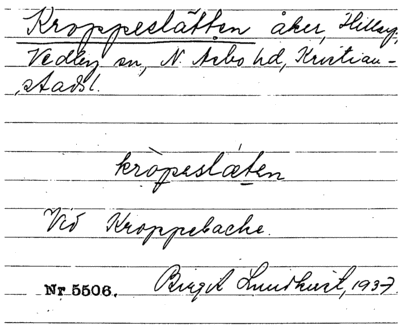 Kroppeslätten åker, Hillarp,
Vedby sn, N. Åsbo hd, Kristian-
stads l.
kròpeslæten
Vid Kroppebacke.
Nr 5506. Birgit Lundkvist, 1937